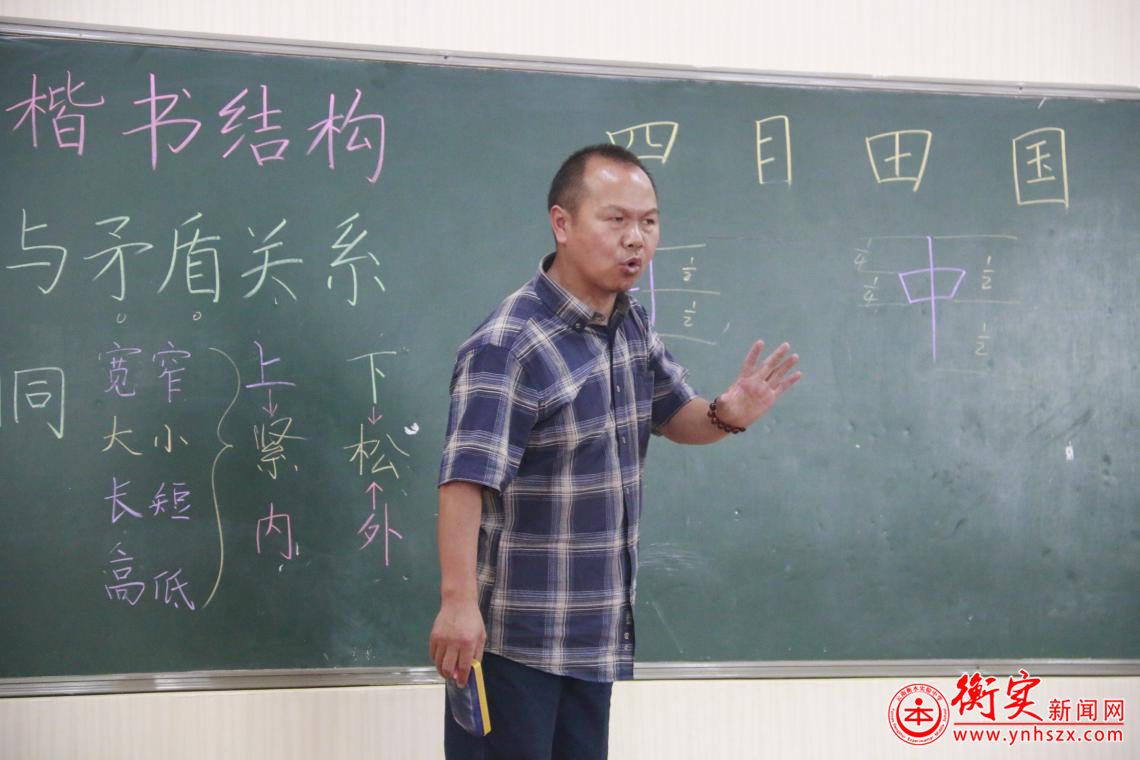 楷书结构
四 目 田 国
与矛盾关系
同
宽 窄 上 下
大 小 紧 松
长 短 内 外
高 低
1/2
1/2
1/4
1/4
中
1/2
1/2
云南衡水实验中学
本
衡实新闻网
www.ynhszx.com